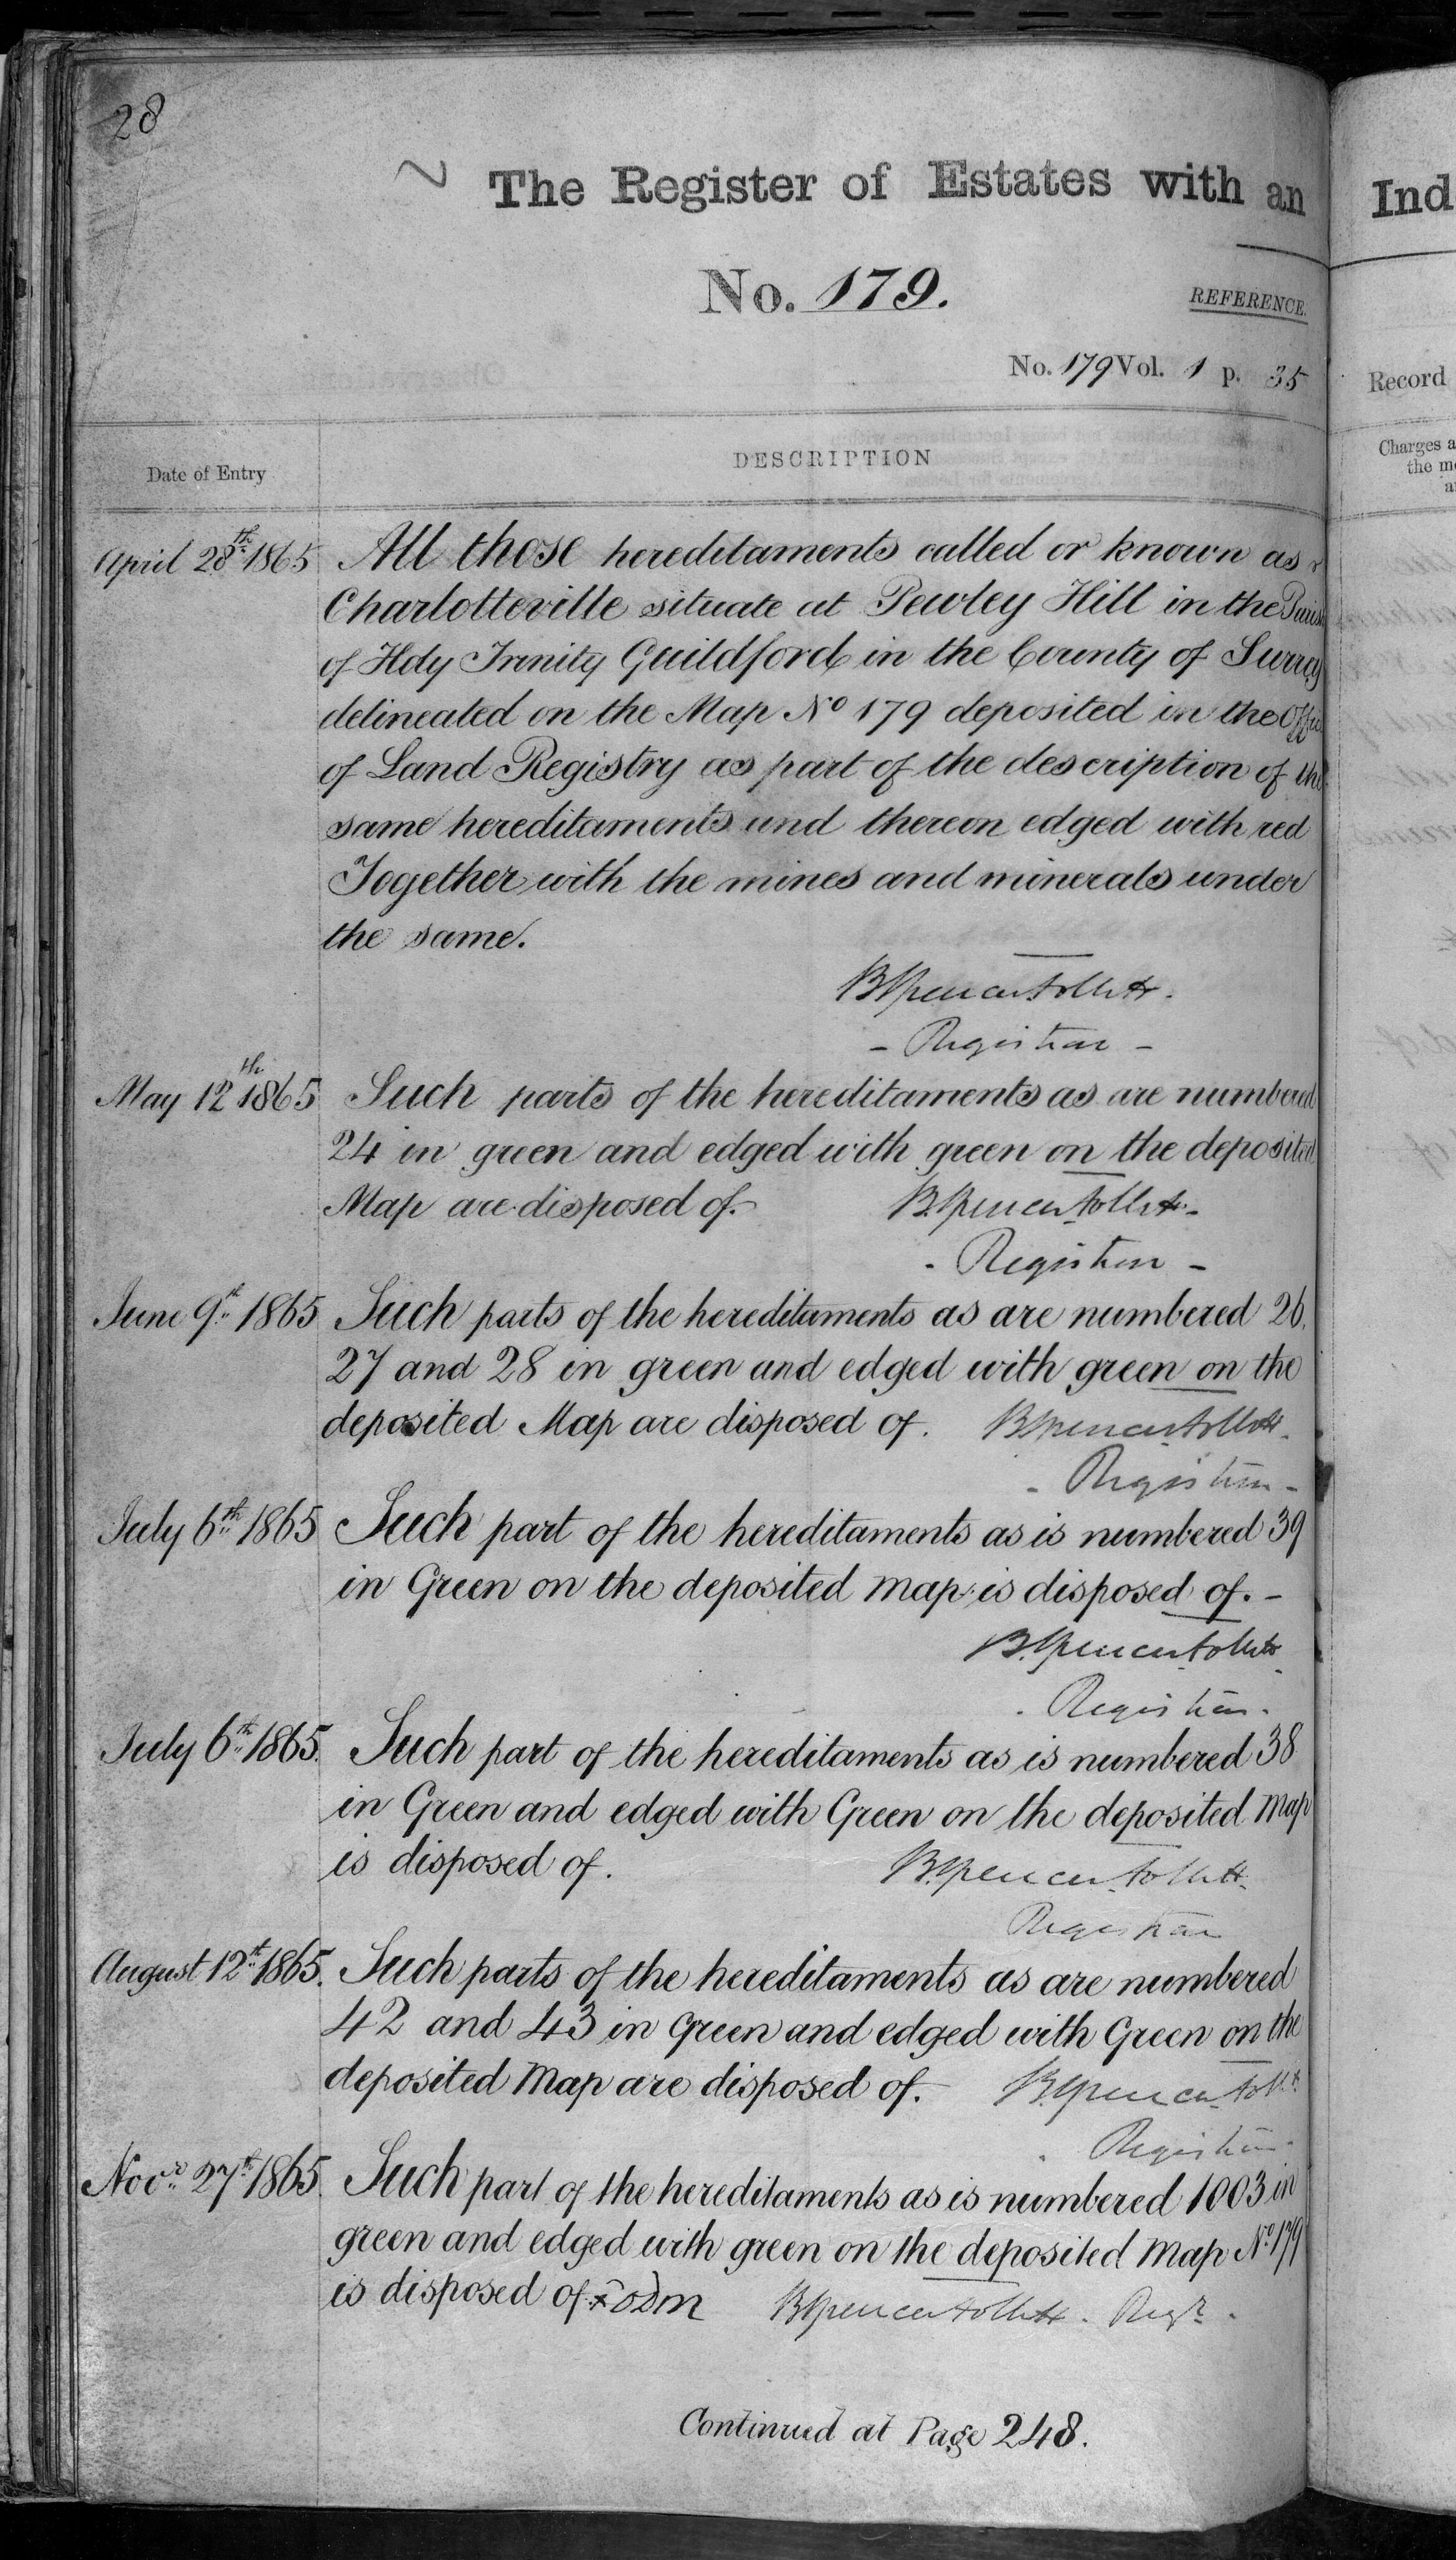 28
The Register of Estates with an
No. 179.
REFERENCE.
No. 179 Vol. 1 p. 35
Date of Entry
DESCRIPTION
April 28th 1865 All those hereditaments called or known as
Charlotteville situate at Pewley Hill in the Parish
of Holy Trinity Guildford in the County of Surrey
delineated on the Map No 179 deposited in the Office
of Land Registry as part of the description of the
same hereditaments and thereon edged with red
Together with the mines and minerals under
the same.
B Spencer Follett.
- Registrar -
May 12th 1865 Such parts of the hereditaments as are numbered
24 in green and edged with green on the deposited
Map are disposed of. B. Spencer Follett -
- Registrar -
June 9th 1865 Such parts of the hereditaments as are numbered 26.
27 and 28 in green and edged with green on the
deposited Map are disposed of. B Spencer Follett.
- Registrar -
July 6th 1865 Such part of the hereditaments as is numbered 39
in Green on the deposited map is disposed of. -
B. Spencer Follett
. Registrar.
July 6th 1865. Such part of the hereditaments as is numbered 38
in Green and edged with Green on the deposited Map
is disposed of. B. Spencer Follett.
Registrar
August 12th 1865. Such parts of the hereditaments as are numbered
42 and 43 in Green and edged with Green on the
deposited Map are disposed of. B. Spencer Follett
. Registrar.
Novr 27th 1865. Such part of the hereditaments as is numbered 1003 in
green and edged with green on the deposited Map No. 179
is disposed of. B Spencer Follett. Regr.
Continued at Page 248.
Ind
Record
Charges a
the m
a